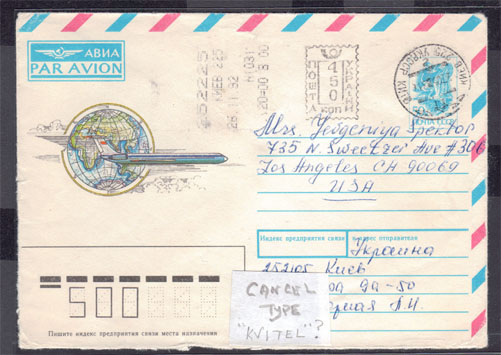 АВИА
PAR AVION
252225
КИЕВ 225
28 11 92
20=00 В.00
УКРАЇНИ
450
коп
ПОШТА
КИЇВ-225
ПОЧТА СССР
Mrs. Yevgeniya Spektor
735 N. Sweetzer Ave #306
Los Angeles CA 90069
USA
Индекс предприятия связи и адрес отправителя
Украина
252105 Киев
9а-50
CANCEL
TYPE
"KVITEL"?
500
Пишите индекс предприятия связи места назначения